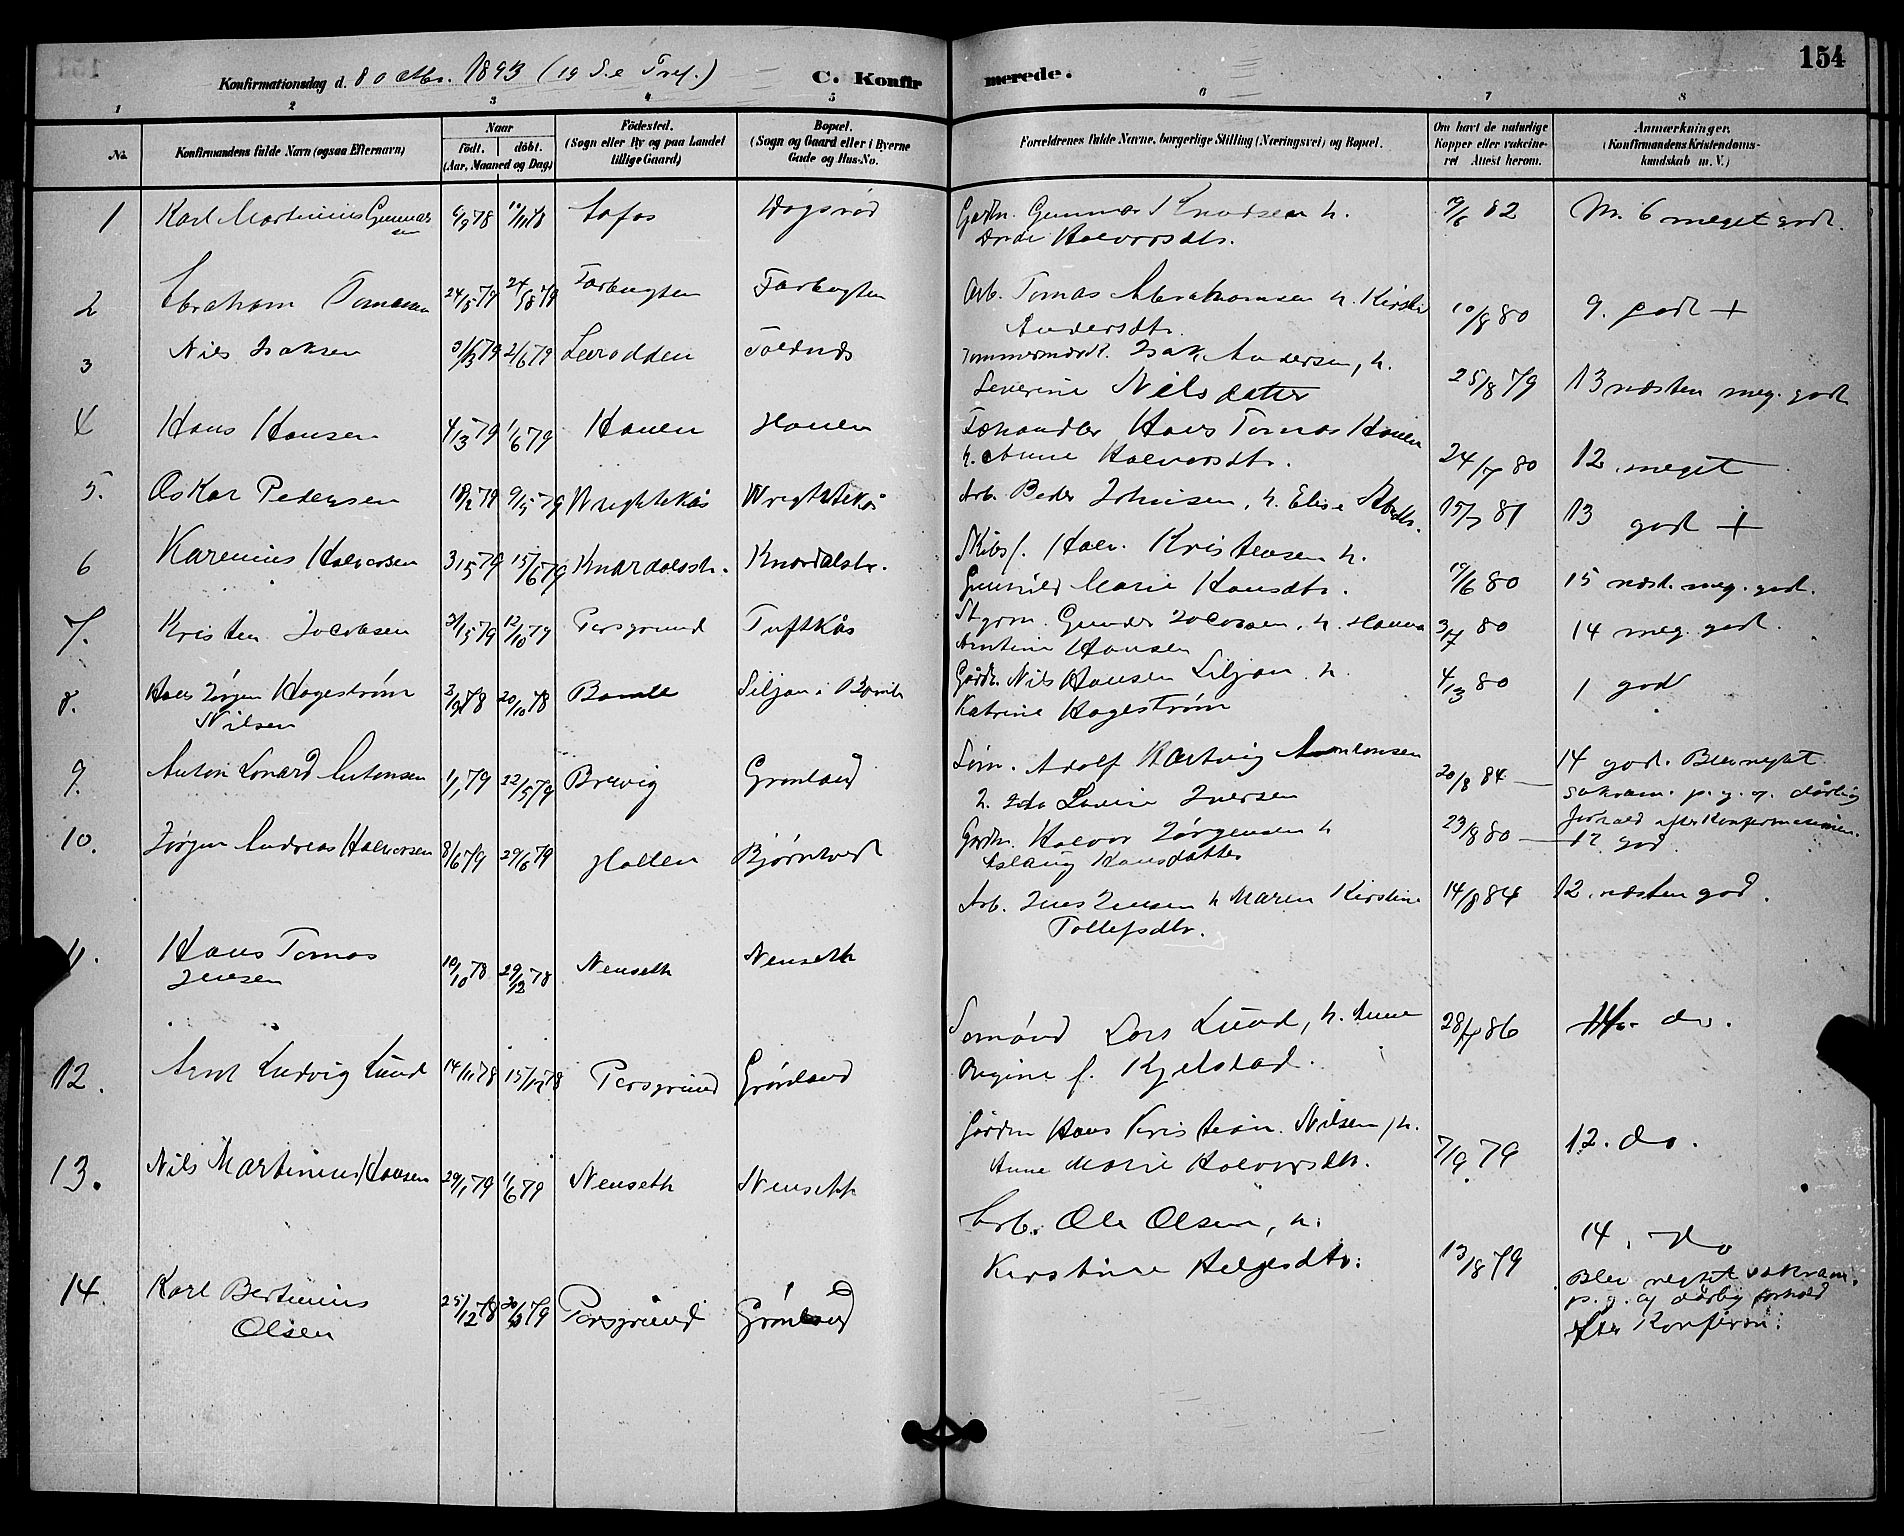 154
Konfirmationsdag d. 8 octbr. 1893 (19 S. e Tref.) C. Konfirmerede.
1 2 3 4 5 6 7 8
No. Konfirmandens fulde Navn (ogsaa Efternavn) Naar født. døbt. (Aar, Maaned og Dag) Fødested. (Sogn eller By og paa Landet tillige Gaard) Bopæl. (Sogn og Gaard eller i Byerne Gade og Hus-No. Forældrenes fulde Navne, borgerlige Stilling (Næringsvei) og Bopæl. Om havt de naturlige Kopper eller vaccineret Attest herom. Anmærkninger. (Konfirmandens Kristendomskundskab m. V.)
1 Karl Martinius Gunnarsen 78 78 Dagsrød Gardm. Gunnar Knudsen h. Halvorsdtr. 19/6 82 M. 6 meget godt.
2 Abraham Tomassen 24/5 79 24/8 79 Farbugten Farbugten Arb. Tomas Abrahamsen h. Kirsti Andersdtr. 10/8 80 9. godt +
3 Nils Isaksen 79 2/6 79 Leerodden Toldnæs Tømmermærk. Isak Andersen, h. Severine Nilsdatter 25/8 79 13 næsten meg. godt
4 Hans Hansen 4/3 79 1/6 79 Hauen Hauen Fæhandler Hans Tomas Hauen h. Anne Halvorsdtr. 24/7 80 12. meget
5. Oskar Pedersen 79 9/5 79 Wrightekås Wrightekås Arb. Peder Johnsen, h. Elise 15/7 81 13 godt +
6 Karenius Halvorsen 3/5 79 15/6 79 Knardalsstr. Knardalstr. Skibsf. Halv. Kristensen h. Gunhild Marie Hansdtr. 19/6 80 15 næst. meg. godt.
7. Kristen Jacobsen 79 12/10 79 Porsgrund Tuftkås Styrm. Gunder Jacobsen, h. Hanna Arntine Hansen 3/7 80 14 meg. godt.
8. Hans Jørgen Hagestrøm Nilsen 78 20/10 78 Bamle Siljan i Bamle Gårdb. Nils Hansen Siljan h. Katrine Hagestrøm 4/3 80 1 god
9. Anton Lenard Antonsen 1/1 79 22/5 79 Brevig Grønland Søm. Adolf Hartvig Antonsen h. Ida Lovise Iversen 20/8 84 14 god. Blev negtet sakram. p. g. a. dårlig forhold efter Konfirmasjonen.
10. Jørgen Andreas Halvorsen 8/6 79 29/6 79 Hallen Bjørntvedt Gardm. Halvor Jørgensen h Aslaug Hansdatter 23/8 80 12 god.
11. Hans Tomas Jensen 10/10 78 29/12 78 Nenseth Nenseth Arb. Jens Jensen h Maren Kirstine Tollefsdtr. 14/8 84 12 næsten god.
12. Arnt Ludvig Lund 14/11 78 15/12 78 Porsgrund Grønland Sømand Lars Lund, h. Anne Regine f. Kjelstad. 28/7 86 14. do.
13. Nils Martinius Hansen 29/1 79 1/6 79 Nenseth Nenseth Gårdm Hans Kristian Nilsen, h. Anne Marie Halvorsdtr. 7/9 79 12. do.
14. Karl Bertinius Olsen 25/12 78 79 Porsgrund Grønland Arb. Ole Olsen, h. Kirstine Helgesdtr. 13/8 79 14. do Blev negtet sakram. p. g. af dårlig forhold efter Konfirm.